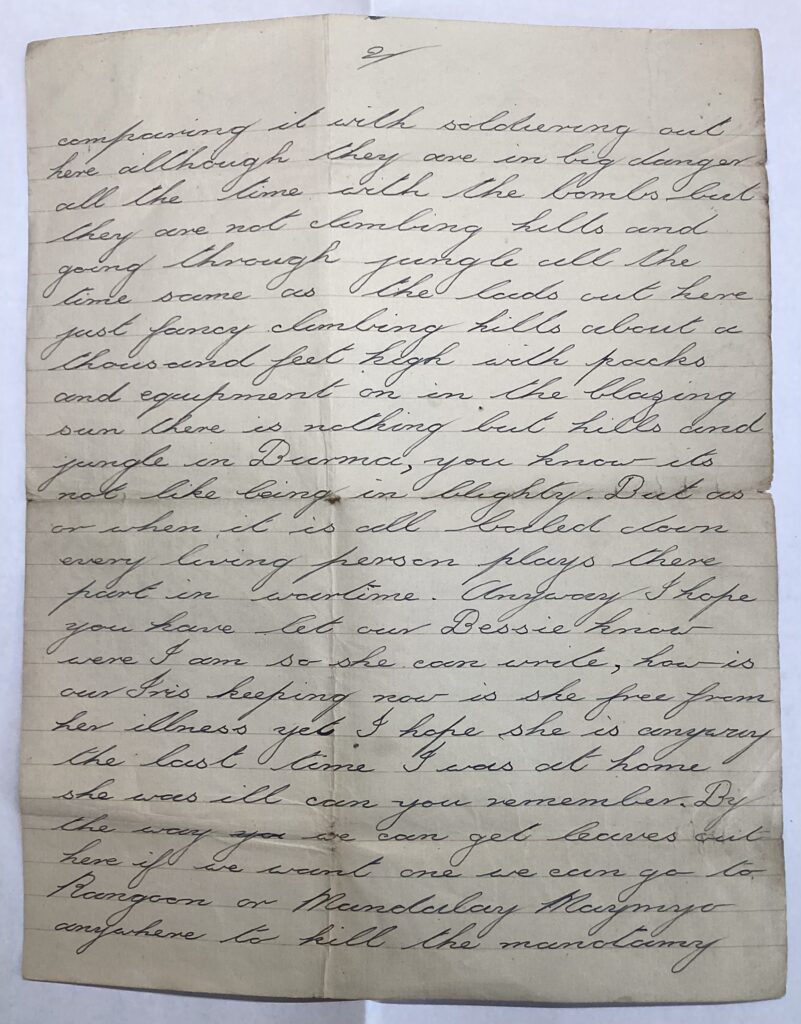 2/
comparing it with soldiering out
here although they are in big danger
all the time with the bombs but
they are not climbing hills and
going through jungle all the
time same as the lads out here
just fancy climbing hills about a
thousand feet high with packs
and equipment on in the blazing
sun there is nothing but hills and
jungle in Burma, you know its
not like being in blighty. But as
or when it is all boiled down
every living person plays there
part in wartime. Anyway I hope
you have let our Bessie know
were I am so she can write, how is
our Iris keeping now is she free from
her illness yet I hope she is anyway
the last time I was at home
she was ill can you remember. By
the way you we can get leaves out
here if we want one we can go to
Rangoon or Mandalay Maymyo
anywhere to kill the monotamy